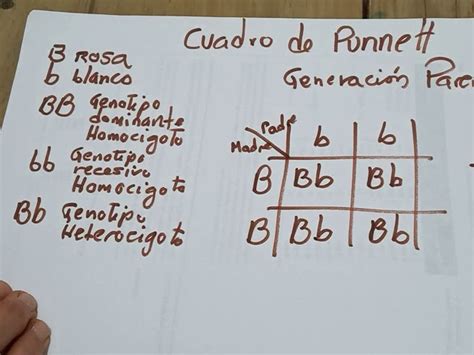 Cuadro de Punnett
Generación Paren
B Rosa
b blanco
BB Genotipo
dominante
Homocigoto
bb Genotipo
recesivo
Homocigoto
Bb Genotipo
Heterocigoto
Padre
Madre
b b
B Bb Bb
B Bb Bb